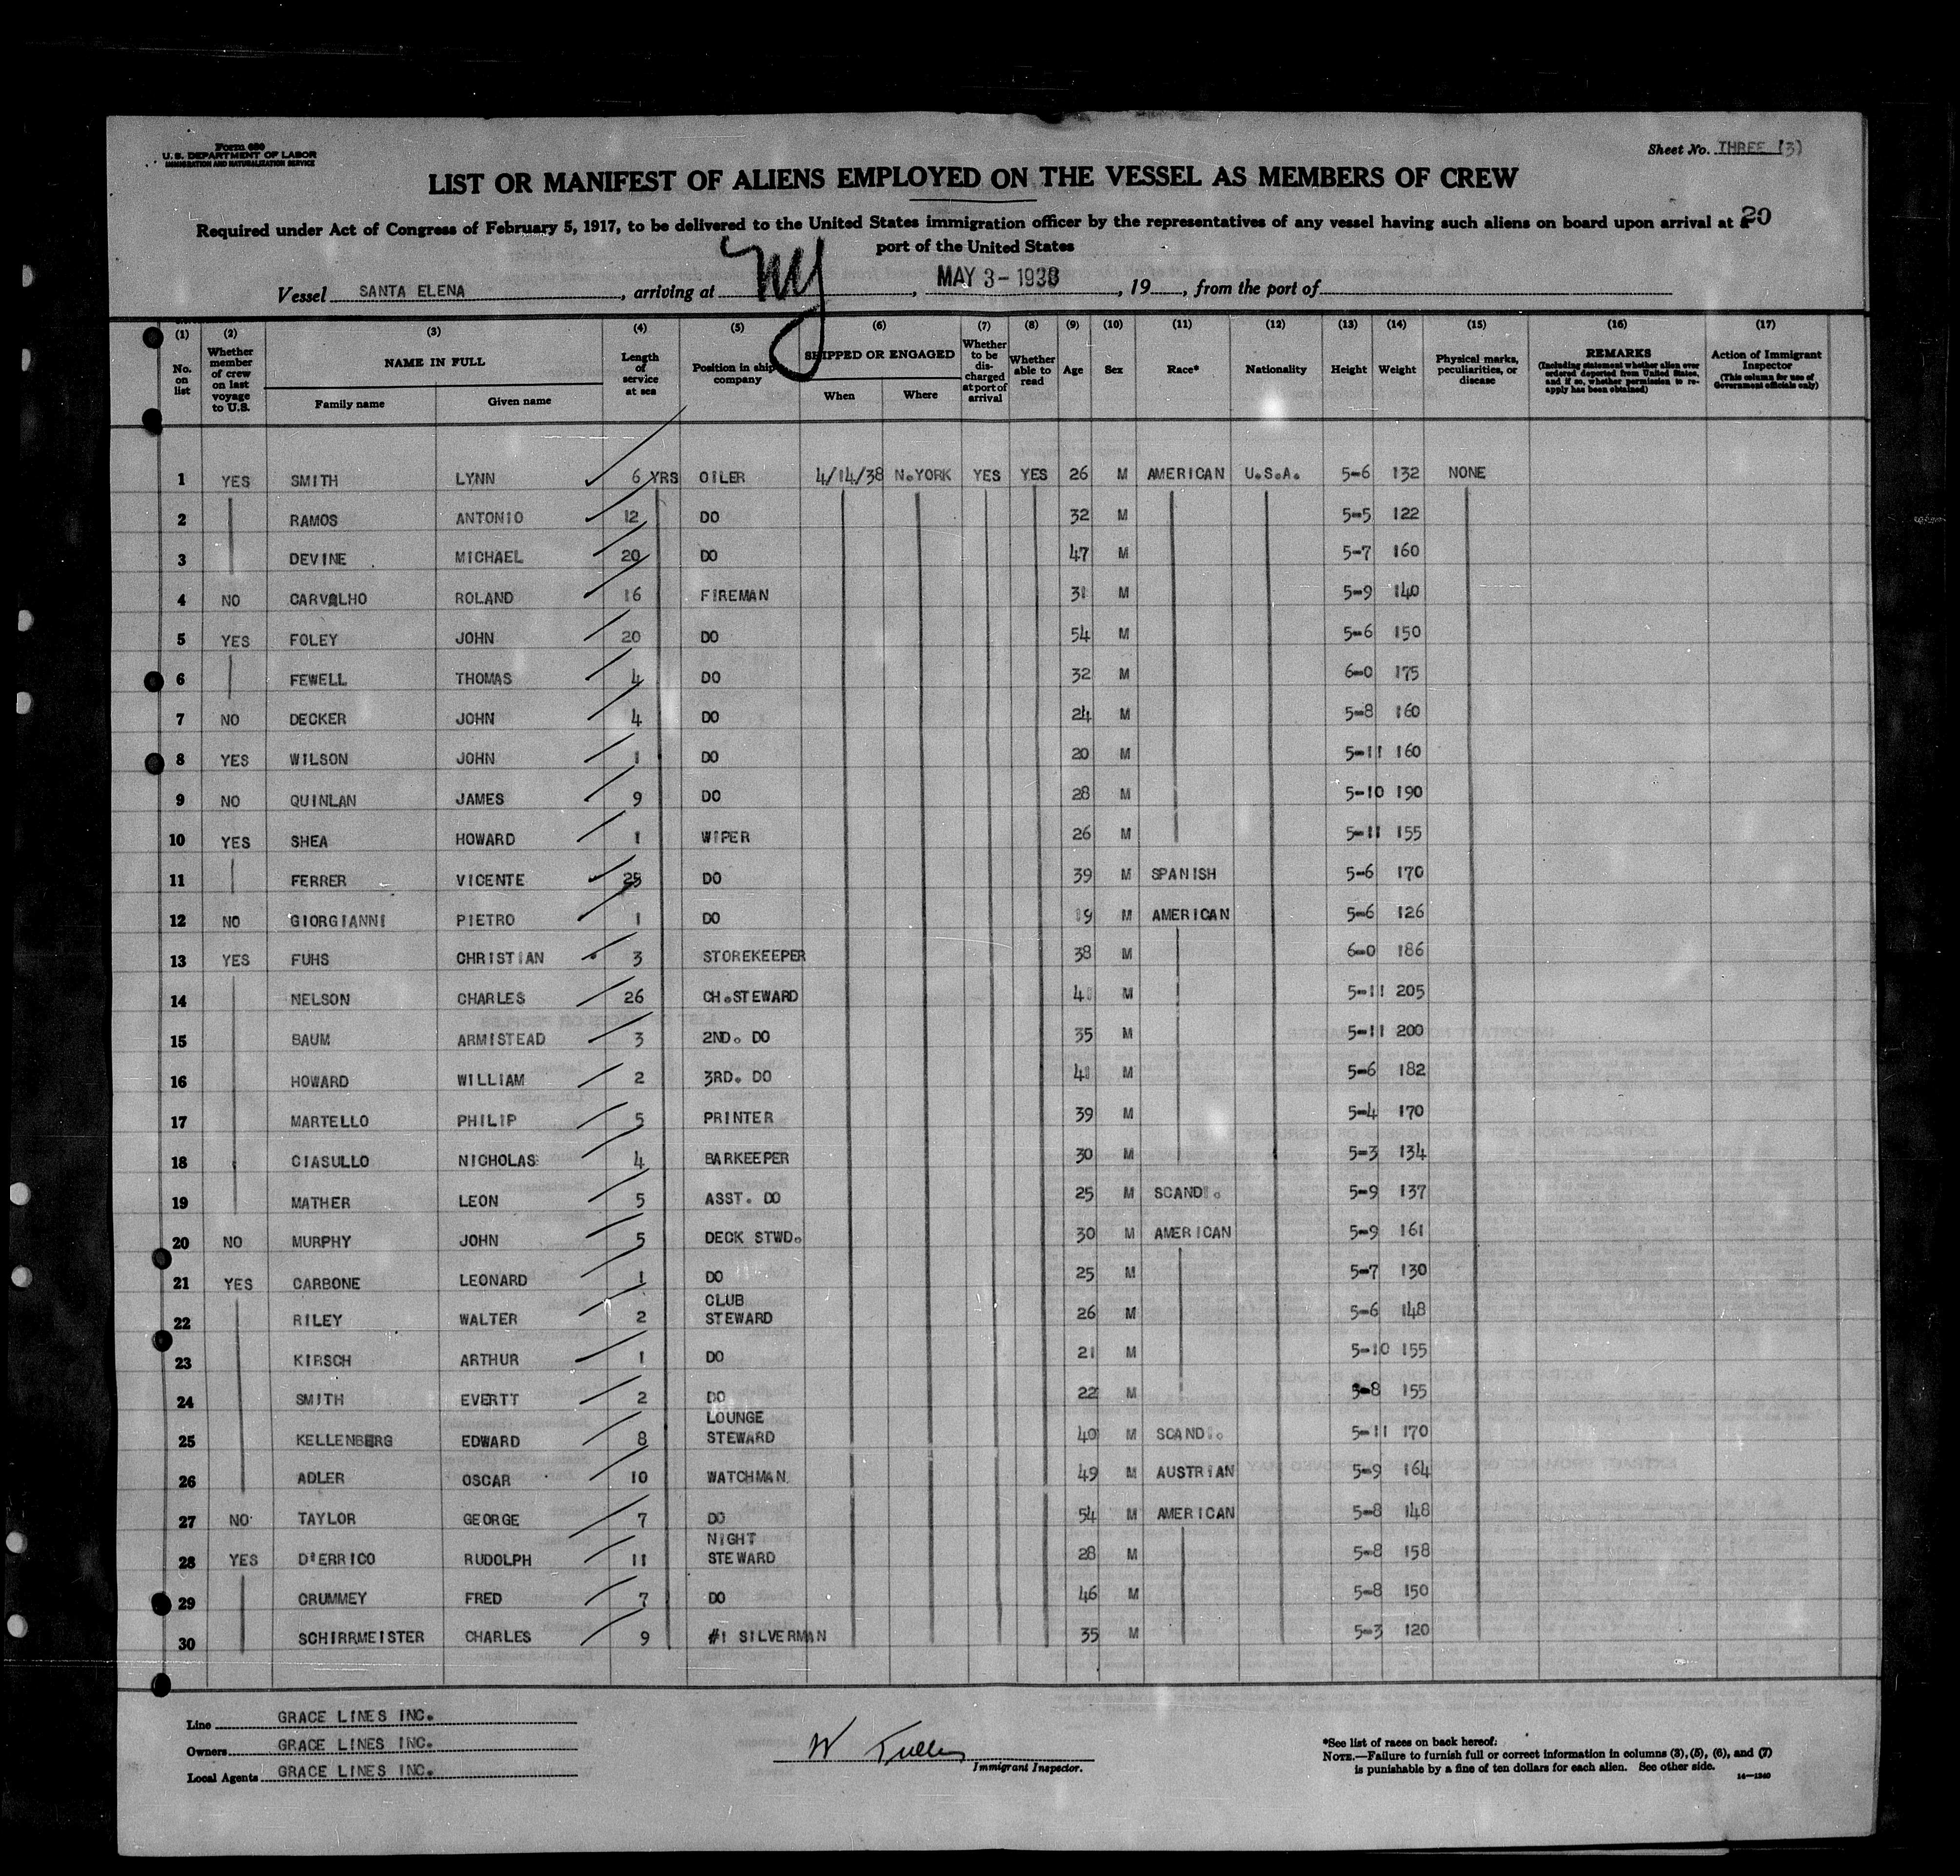 Form 680
U. S. DEPARTMENT OF LABOR
IMMIGRATION AND NATURALIZATION SERVICE
Sheet No. THREE (3)
LIST OR MANIFEST OF ALIENS EMPLOYED ON THE VESSEL AS MEMBERS OF CREW
20
Required under Act of Congress of February 5, 1917, to be delivered to the United States immigration officer by the representatives of any vessel having such aliens on board upon arrival at a
port of the United States
Vessel SANTA ELENA, arriving at NY, MAY 3-1938, 19, from the port of
(1) (2) (3) (4) (5) (6) (7) (8) (9) (10) (11) (12) (13) (14) (15) (16) (17)
No. on list
Whether member of crew on last voyage to U.S.
NAME IN FULL
Family name
Given name
Length of service at sea
Position in ship company
SHIPPED OR ENGAGED
When
Where
Whether to be discharged at port of arrival
Whether able to read
Age
Sex
Race*
Nationality
Height
Weight
Physical marks, peculiarities, or disease
REMARKS
(Including statement whether alien ever ordered deported from United States, and if so, whether permission to reapply has been obtained)
Action of Immigrant Inspector
(This column for use of Government officials only)
1 YES SMITH LYNN 6 YRS OILER 4/14/38 N.YORK YES YES 26 M AMERICAN U.S.A. 5-6 132 NONE
2 RAMOS ANTONIO 12 DO 32 M 5-5 122
3 DEVINE MICHAEL 20 DO 47 M 5-7 160
4 NO CARVALHO ROLAND 16 FIREMAN 31 M 5-9 140
5 YES FOLEY JOHN 20 DO 54 M 5-6 150
6 FEWELL THOMAS 4 DO 32 M 6-0 175
7 NO DECKER JOHN 4 DO 24 M 5-8 160
8 YES WILSON JOHN 1 DO 20 M 5-11 160
9 NO QUINLAN JAMES 9 DO 28 M 5-10 190
10 YES SHEA HOWARD 1 WIPER 26 M 5-11 155
11 FERRER VICENTE 25 DO 39 M SPANISH 5-6 170
12 NO GIORGIANNI PIETRO 1 DO 19 M AMERICAN 5-6 126
13 YES FUHS CHRISTIAN 3 STOREKEEPER 38 M 6-0 186
14 NELSON CHARLES 26 CH.STEWARD 41 M 5-11 205
15 BAUM ARMISTEAD 3 2ND. DO 35 M 5-11 200
16 HOWARD WILLIAM 2 3RD. DO 41 M 5-6 182
17 MARTELLO PHILIP 5 PRINTER 39 M 5-4 170
18 CIASULLO NICHOLAS 4 BARKEEPER 30 M 5-3 134
19 MATHER LEON 5 ASST. DO 25 M SCANDI. 5-9 137
20 NO MURPHY JOHN 5 DECK STWD. 30 M AMERICAN 5-9 161
21 YES CARBONE LEONARD 1 DO 25 M 5-7 130
22 RILEY WALTER 2 CLUB STEWARD 26 M 5-6 148
23 KIRSCH ARTHUR 1 DO 21 M 5-10 155
24 SMITH EVERTT 2 DO 22 M 5-8 155
25 KELLENBERG EDWARD 8 LOUNGE STEWARD 40 M SCANDI. 5-11 170
26 ADLER OSCAR 10 WATCHMAN 49 M AUSTRIAN 5-9 164
27 NO TAYLOR GEORGE 7 DO 54 M AMERICAN 5-8 148
28 YES D'ERRICO RUDOLPH 11 NIGHT STEWARD 28 M 5-8 158
29 CRUMMEY FRED 7 DO 46 M 5-8 150
30 SCHIRRMEISTER CHARLES 9 #1 SILVERMAN 35 M 5-3 120
Line GRACE LINES INC.
Owners GRACE LINES INC.
Local Agents GRACE LINES INC.
Immigrant Inspector.
*See list of races on back hereof.
NOTE.—Failure to furnish full or correct information in columns (3), (5), (6), and (7)
is punishable by a fine of ten dollars for each alien. See other side.
14—1240